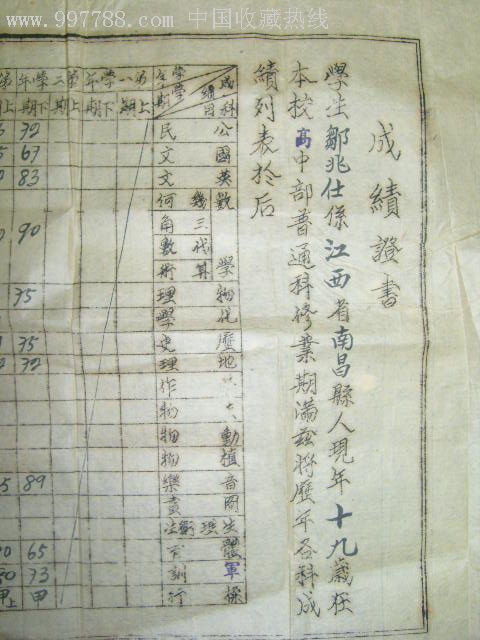 www.997788.com 中国收藏热线
成績證書
學生鄒兆仕係江西省南昌縣人現年十九歲在
本校高中部普通科修業期滿茲將歷年各科成
績列表於后
成績 科目 學年 學期
第一學年 上期 下期
第二學年 上期 下期
第三學年 上期 下
公民
國文 72
英文 67
數學 83
幾何
三角 90
代數
算術
物理 75
化學
歷史 75
地理 72
作
物
動物
植物
音樂 89
圖畫
生理衛生
體育 65
軍訓 73
操行 甲 甲上